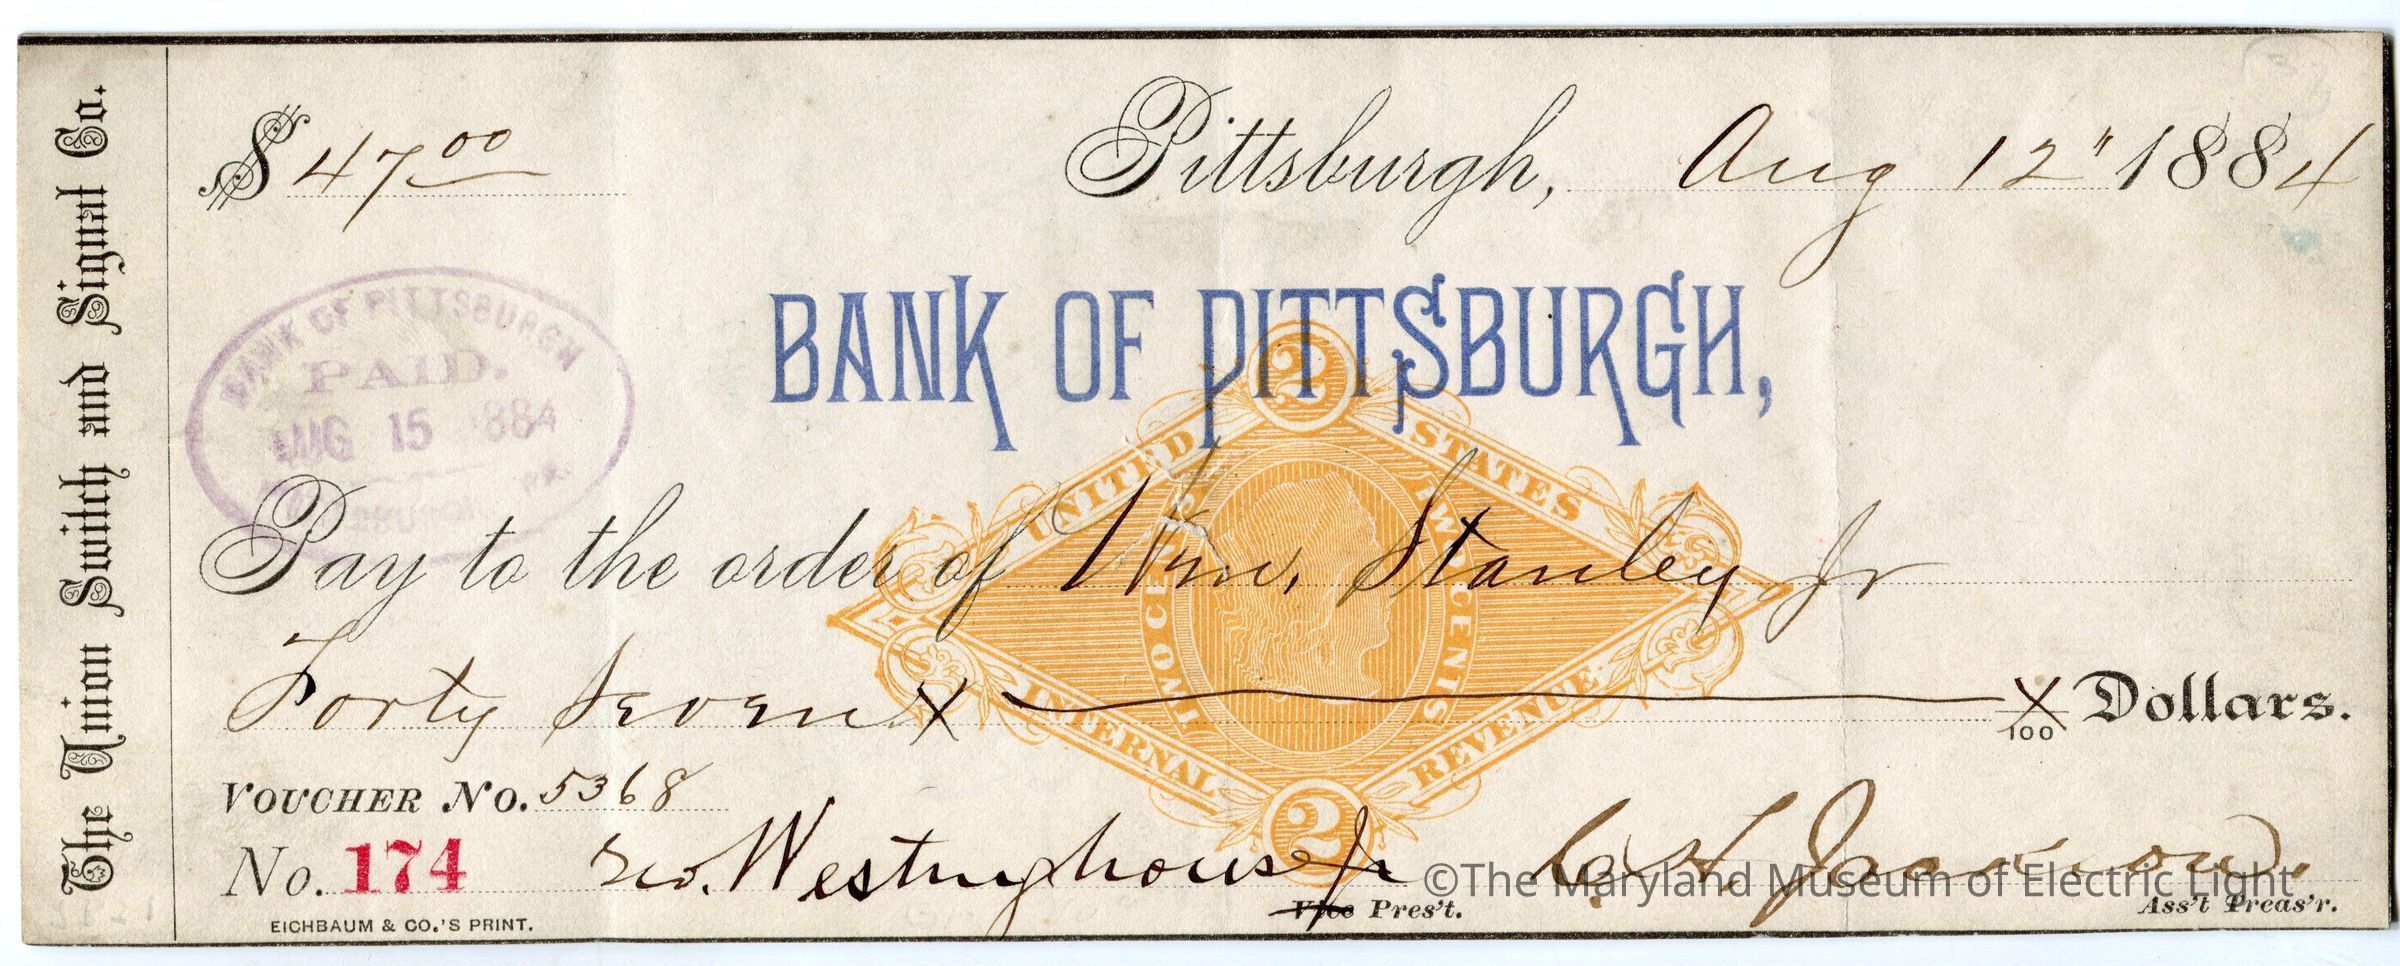 The Union Switch and Signal Co.
$ 47 00 Pittsburgh, Aug 12" 1884
BANK OF PITTSBURGH,
BANK OF PITTSBURGH
PAID.
AUG 15 1884
PA.
2
UNITED STATES
TWO CENTS TWO CENTS
INTERNAL REVENUE
2
Pay to the order of Wm. Stanley Jr
Forty Seven X X/100 Dollars.
VOUCHER No. 5368
No. 174 Geo. Westinghouse Jr
Vice Pres't. Ass't Treas'r.
EICHBAUM & CO.'S PRINT.
©The Maryland Museum of Electric Light